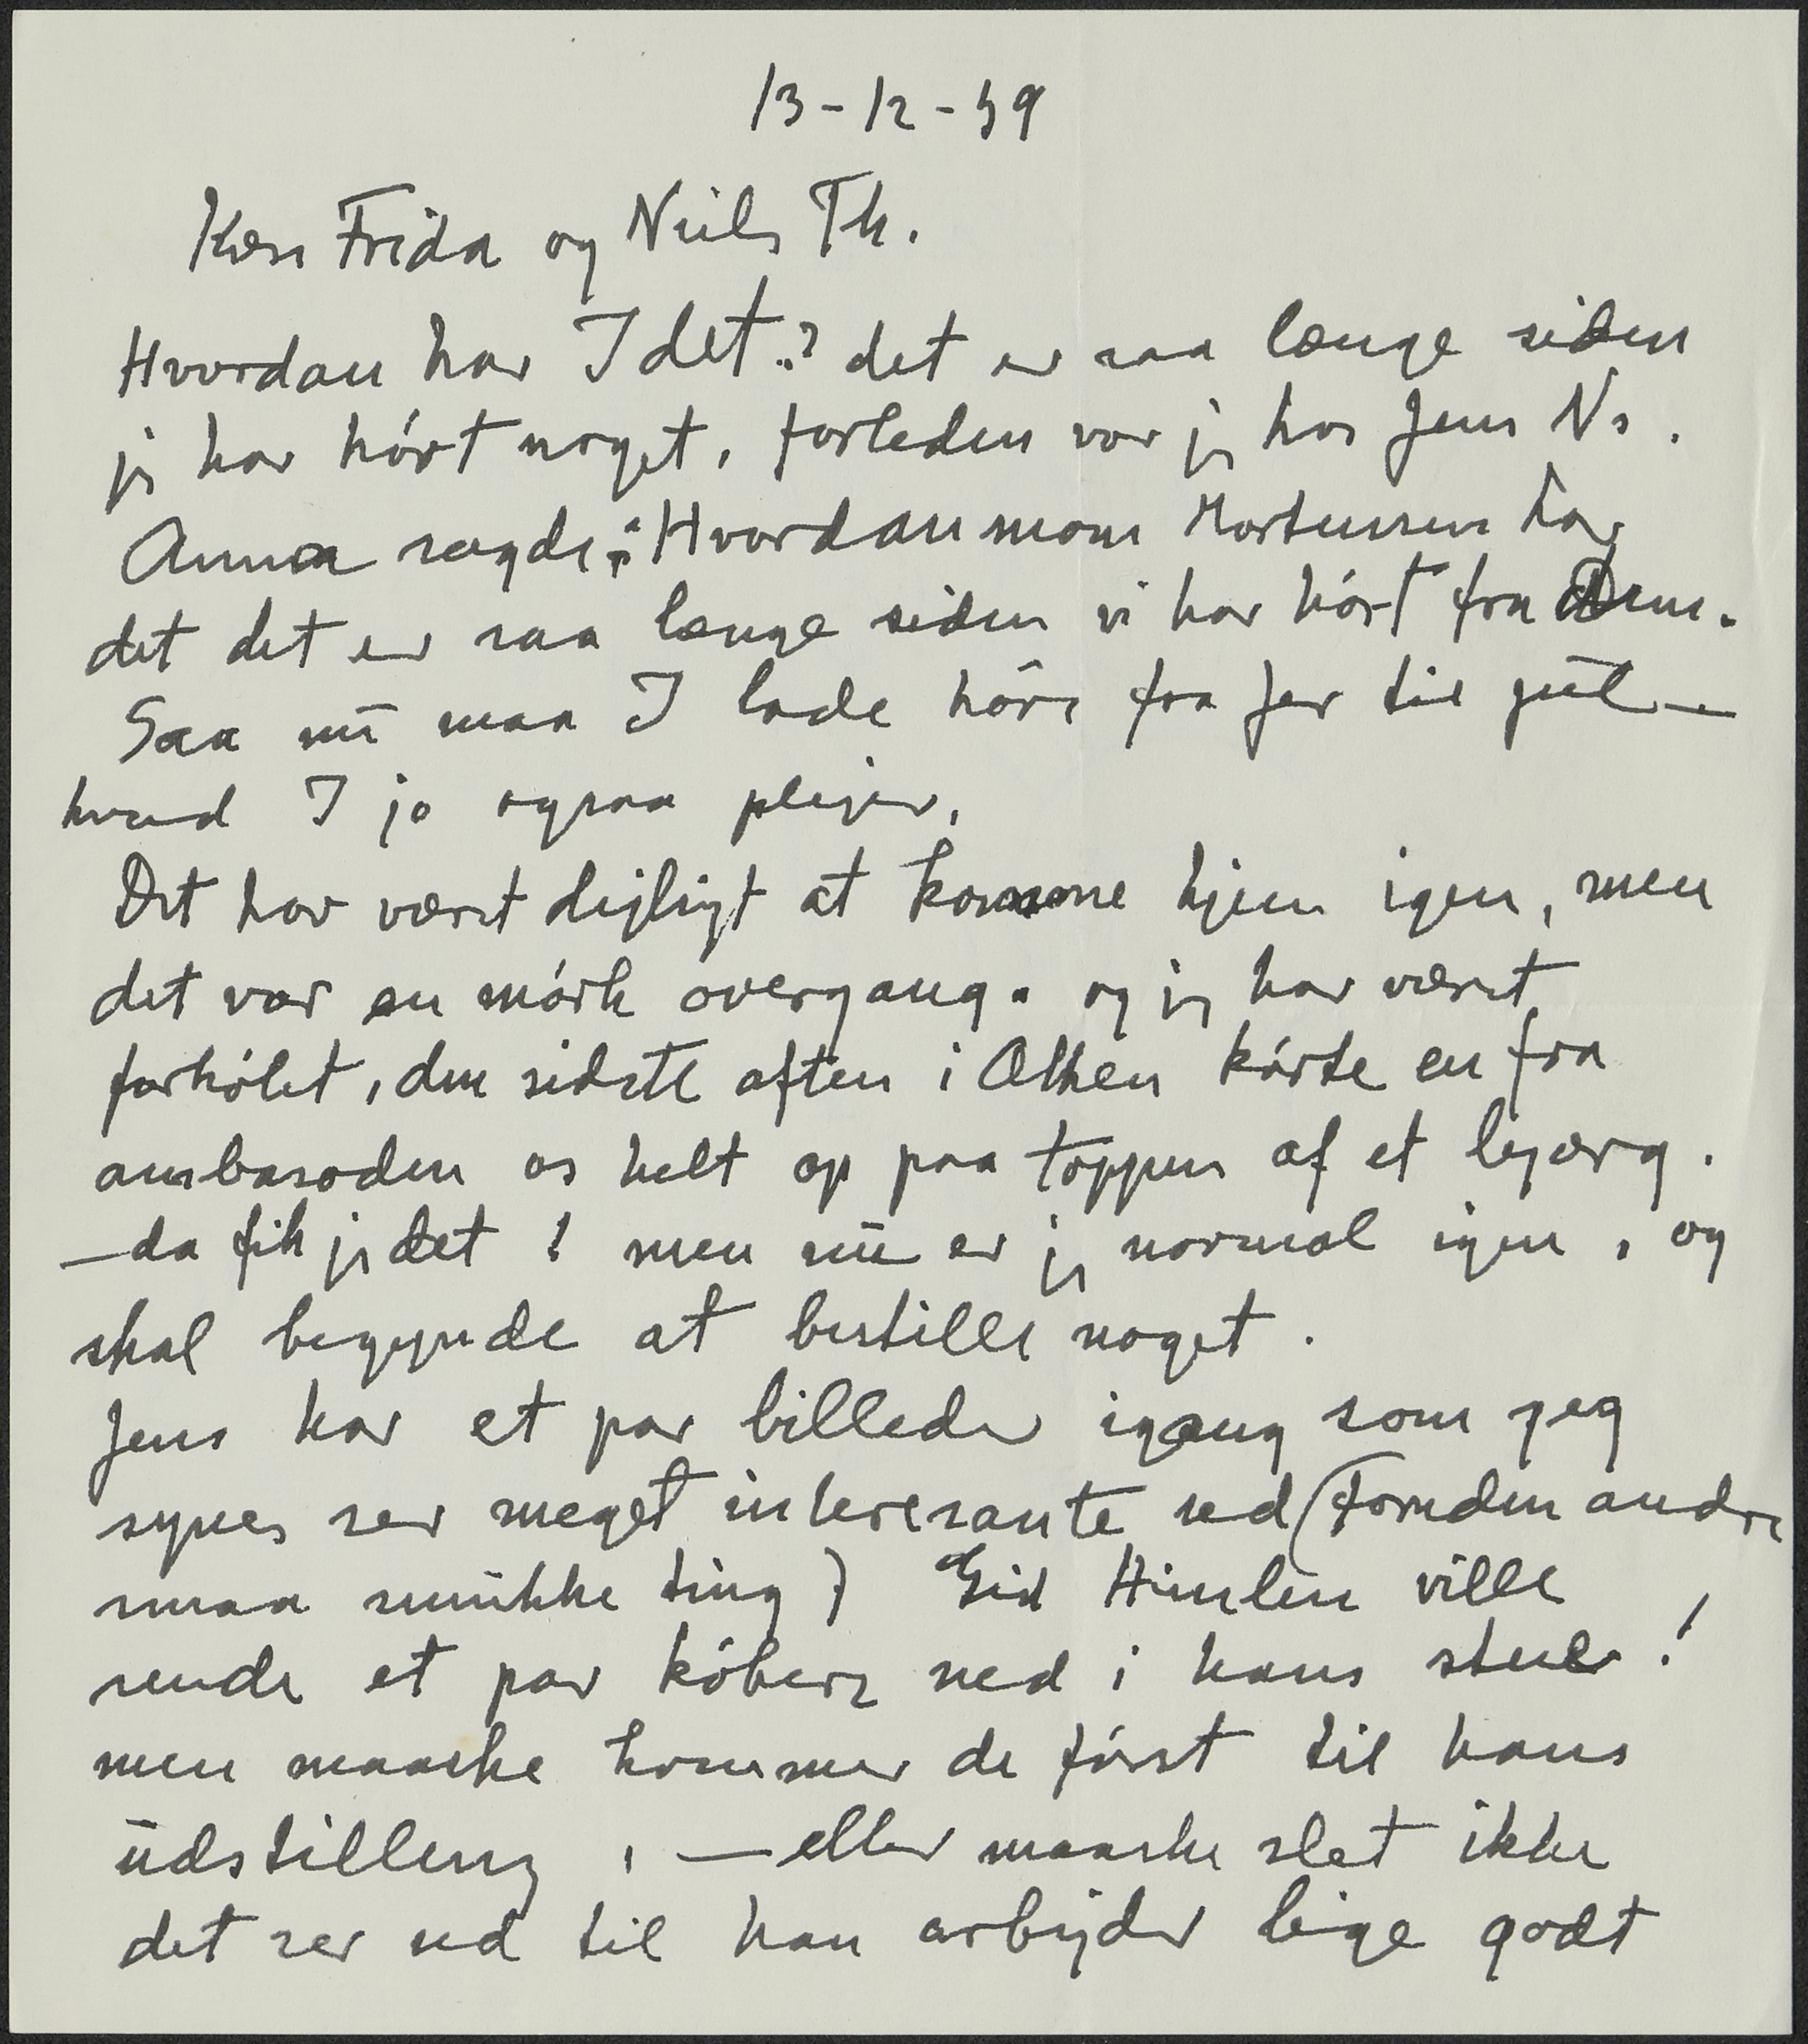 13-12-59
Kære Frida og Niels Th.
Hvordan har I det..? det er saa længe siden
jeg har hört noget, forleden var jeg hos Jens Ns.
Anna sagde: Hvordan mon Mortensens har
det det er saa længe siden vi har hört fra Dem.
Saa nu maa I lade höre fra Jer til jul —
hvad I jo ogsaa plejer.
Det har været dejligt at komme hjem igen, men
det var en mörk overgang. og jeg har været
forkölet, den sidste aften i Athen körte en fra
ambasaden os helt op paa toppen af et bjærg.
— da fik jeg det! men nu er jeg normal igen, og
skal begynde at bestille noget.
Jens har et par billeder igang som jeg
synes ser meget interesante ud (foruden andre
smaa smukke ting) Gid Himlen ville
sende et par köbere ned i hans stue!
men maaske kommer de först til hans
udstilling, — eller maaske slet ikke
det ser ud til han arbejder lige godt